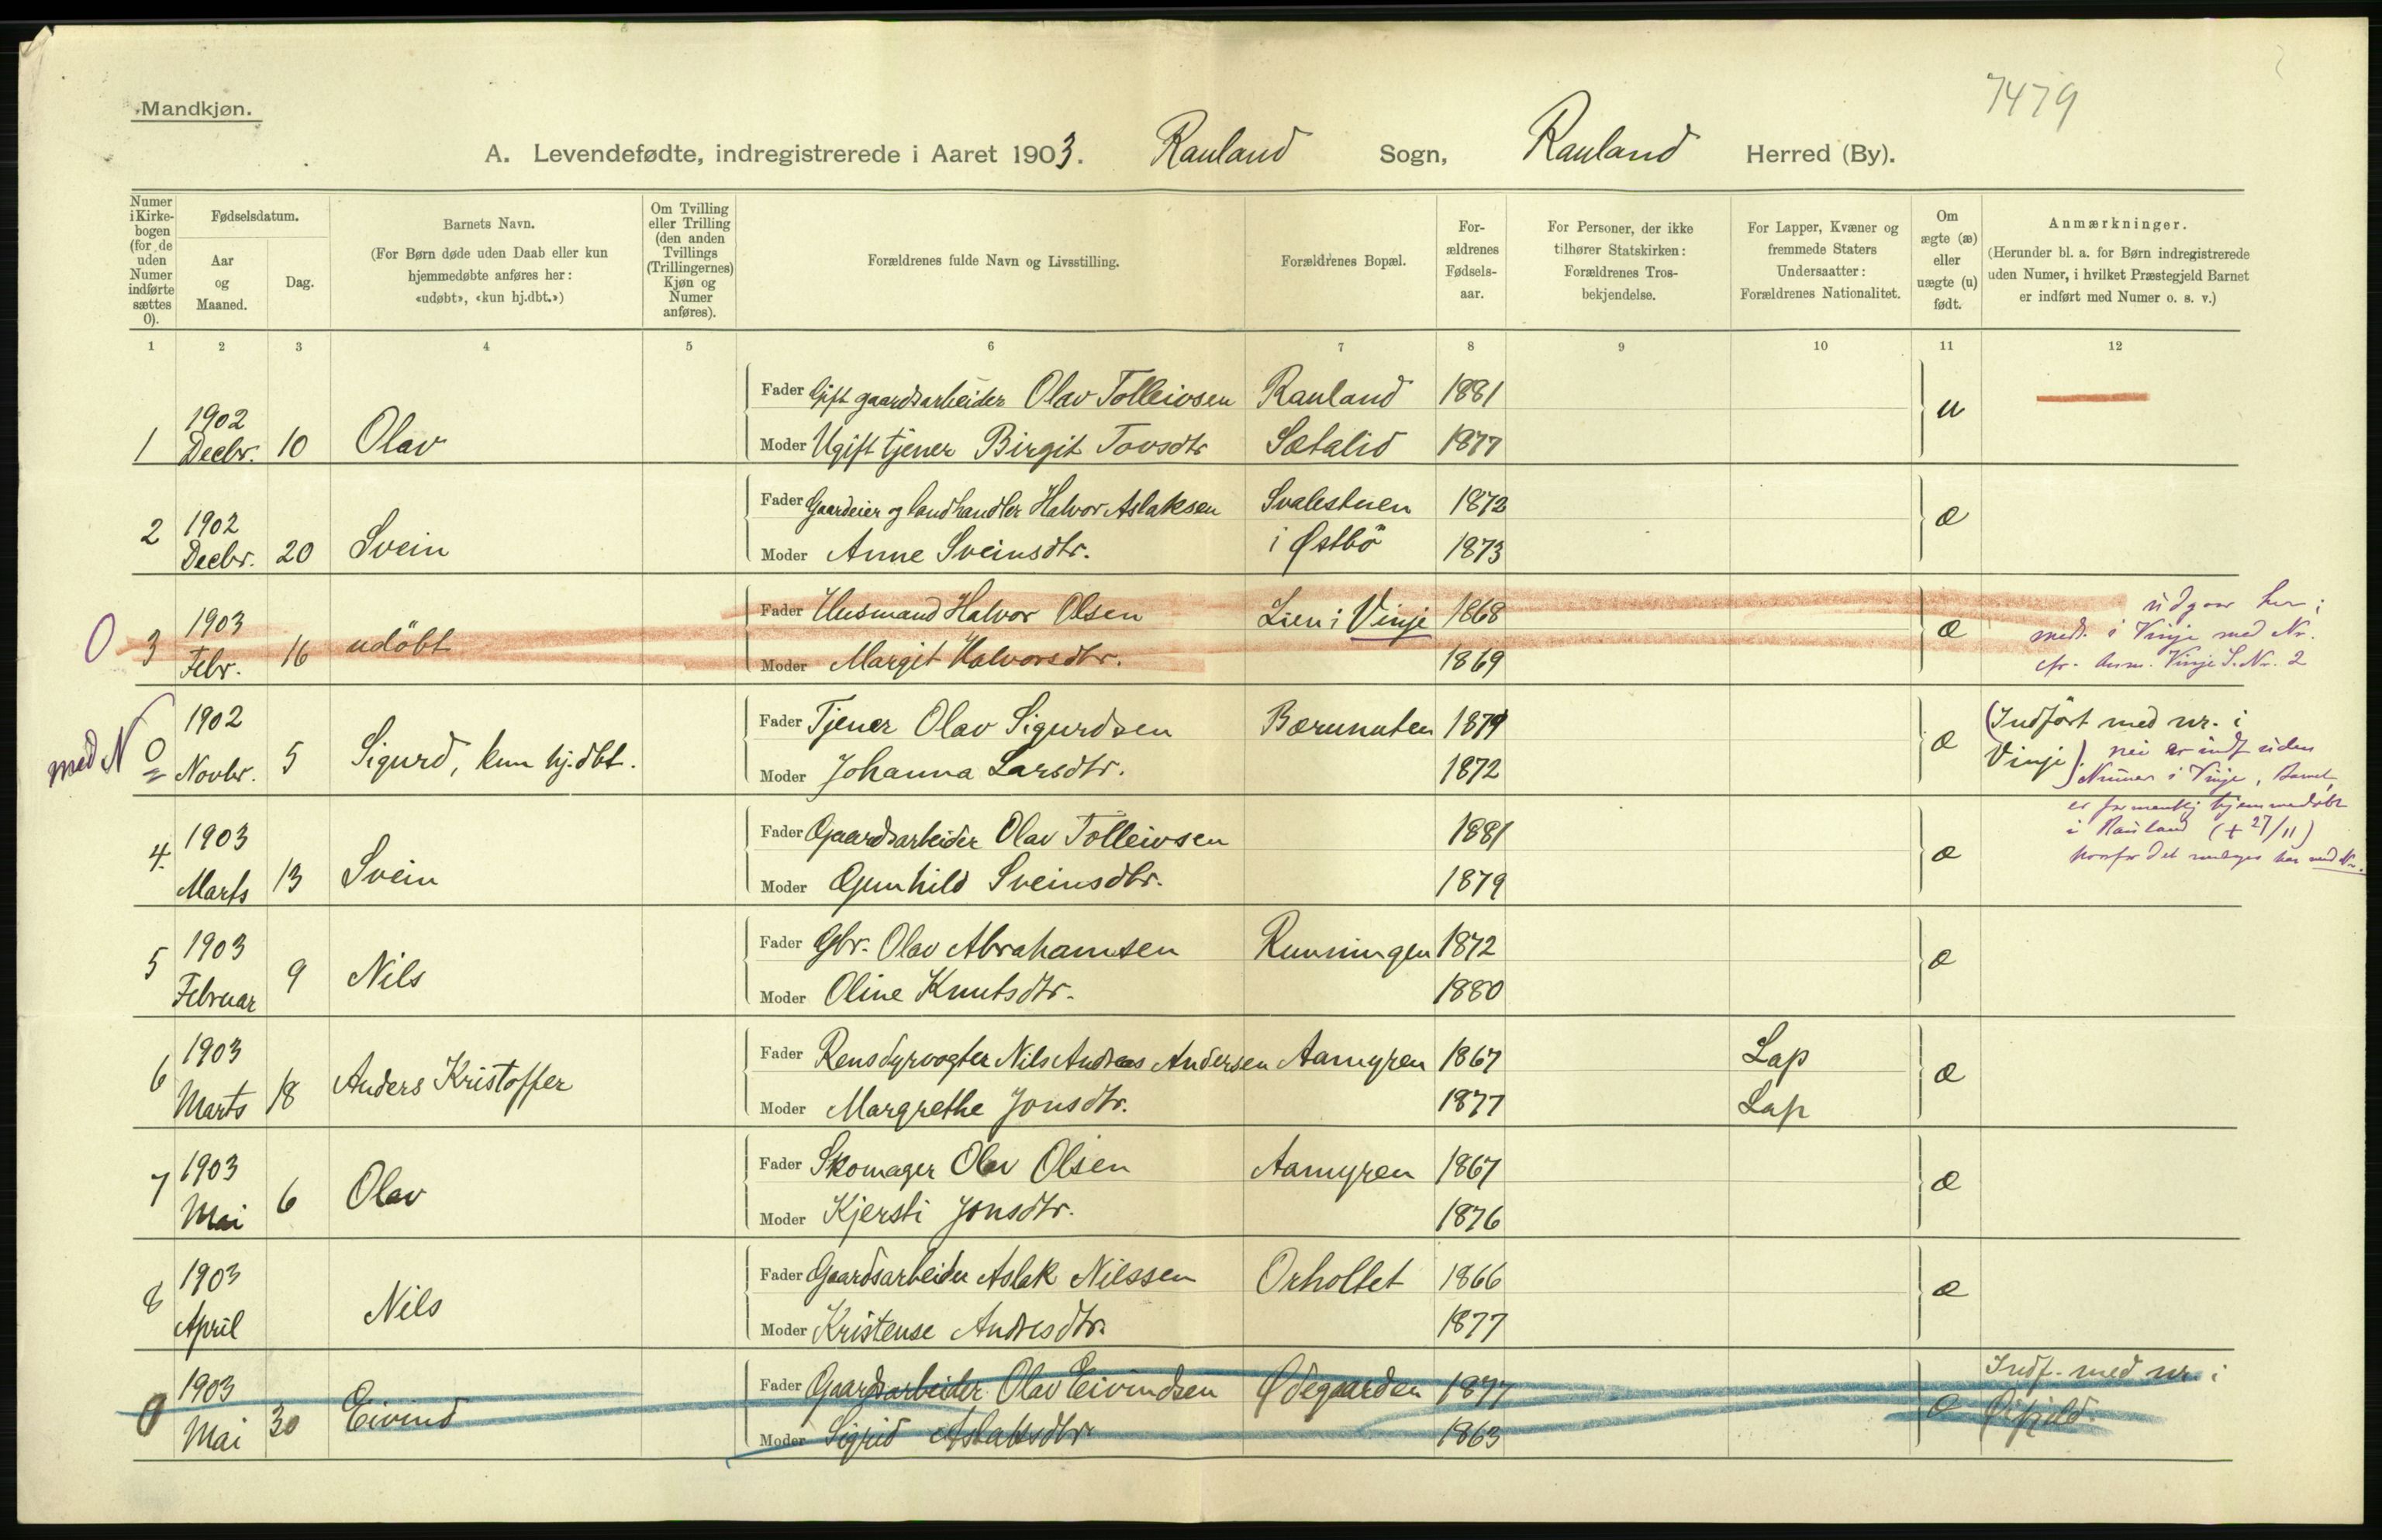 7479
Mandkjøn.
A. Levendefødte, indregistrerede i Aaret 1903. Rauland Sogn, Rauland Herred (By).
Numer i Kirkebogen (for de uden Numer indførte sættes 0).
Fødselsdatum.
Aar og Maaned.
Dag.
Barnets Navn.
(For Børn døde uden Daab eller kun hjemmedøbte anføres her: «udøbt», «kun hj.dbt.»)
Om Tvilling eller Trilling (den anden Tvillings (Trillingernes) Kjøn og Numer anføres).
Forældrenes fulde Navn og Livsstilling.
Forældrenes Bopæl.
Forældrenes Fødselsaar.
For Personer, der ikke tilhører Statskirken: Forældrenes Trosbekjendelse.
For Lapper, Kvæner og fremmede Staters Undersaatter: Forældrenes Nationalitet.
Om ægte (æ) eller uægte (u) født.
Anmærkninger.
(Herunder bl. a. for Børn indregistrerede uden Numer, i hvilket Præstegjeld Barnet er indført med Numer o. s. v.)
1 2 3 4 5 6 7 8 9 10 11 12
Fader Gift gaardsarbeider Olav Tolleivsen Rauland 1881
1 1902 Decbr. 10 Olav u
Moder Ugift tjener Birgit Tovsdtr Sætalid 1877
Fader Gaardeier og landhandler Halvor Aslaksen Svalestuen 1872
2 1902 Decbr. 20 Svein æ
Moder Anne Sveinsdtr. i Østbö 1873
Fader Husmand Halvor Olsen Lien i Vinje 1868
0 3 1903 Febr. 16 udöbt æ
Moder Margit Halvorsdtr. 1869
udgaar her;
medt. i Vinje med Nr.
cfr. Anm. Vinje S. Nr. 2
Fader Tjener Olav Sigurdsen Bærunuten 1879
med N 0 1902 Novbr. 5 Sigurd, kun hj.dbt. æ
Moder Johanna Larsdtr. 1872
(Indfört med nr. i
Vinje) nei er indf uden
Numer i Vinje, Barnet
er formentlig hjemmedøbt
i Rauland (+ 27/11)
hvorfor det medtages her med Nr.
Fader Gaardsarbeider Olav Tolleivsen 1881
4. 1903 Marts 13 Svein æ
Moder Gunhild Sveinsdtr. 1879
Fader Gbr. Olav Abrahamsen Runningen 1872
5 1903 Februar 9 Nils æ
Moder Oline Knutsdtr. 1880
Fader Rensdyrvogter Nils Andreas Andersen Aamyren 1867 Lap
6 1903 Marts 18 Anders Kristoffer æ
Moder Margrethe Jonsdtr. 1877 Lap
Fader Skomager Olav Olsen Aamyren 1867
7 1903 Mai 6 Olav æ
Moder Kjersti Jonsdtr. 1876
Fader Gaardsarbeider Aslak Nilssen Orholtet 1866
8 1903 April Nils æ
Moder Kristense Andresdtr. 1877
Fader Gaardsarbeider Olav Eivindsen Ødegaarden 1877
0 1903 Mai 30 Eivind æ
Moder Sigrid Aslaksdtr 1863
Indf. med nr. i
Øifjeld.